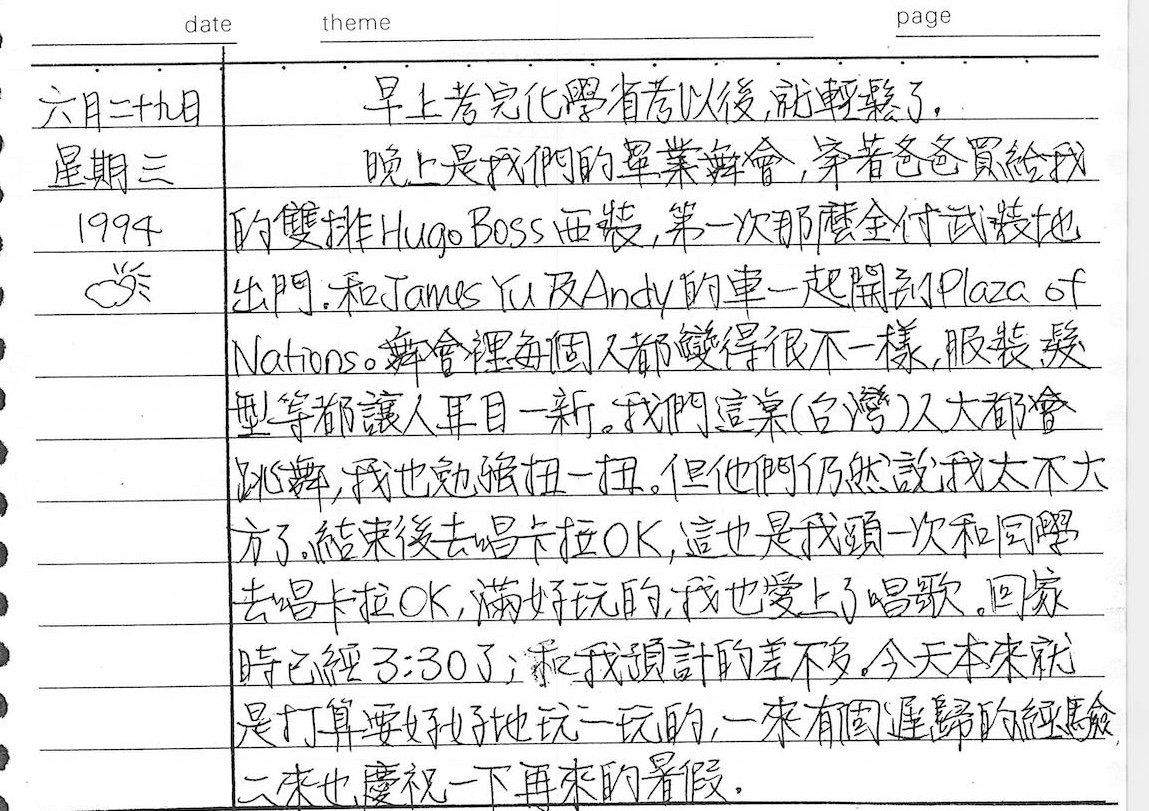 date theme page
六月二十九日 早上考完化學省考以後,就輕鬆了.
星期三 晚上是我們的畢業舞會,穿著爸爸買給我
1994 的雙排Hugo Boss西裝,第一次那麼全付武裝地
出門.和James Yu及Andy的車一起開到Plaza of
Nations。舞會裡每個人都變得很不一樣,服裝、髮
型等都讓人耳目一新。我們這票(台灣)人大都會
跳舞,我也勉強扭一扭。但他們仍然說我太不大
方了.結束後去唱卡拉OK,這也是我頭一次和同學
去唱卡拉OK,滿好玩的,我也愛上了唱歌。回家
時已經3:30了;和我預計的差不多。今天本來就
是打算要好好地玩一玩的,一來有個遲歸的經驗,
二來也慶祝一下再來的暑假.